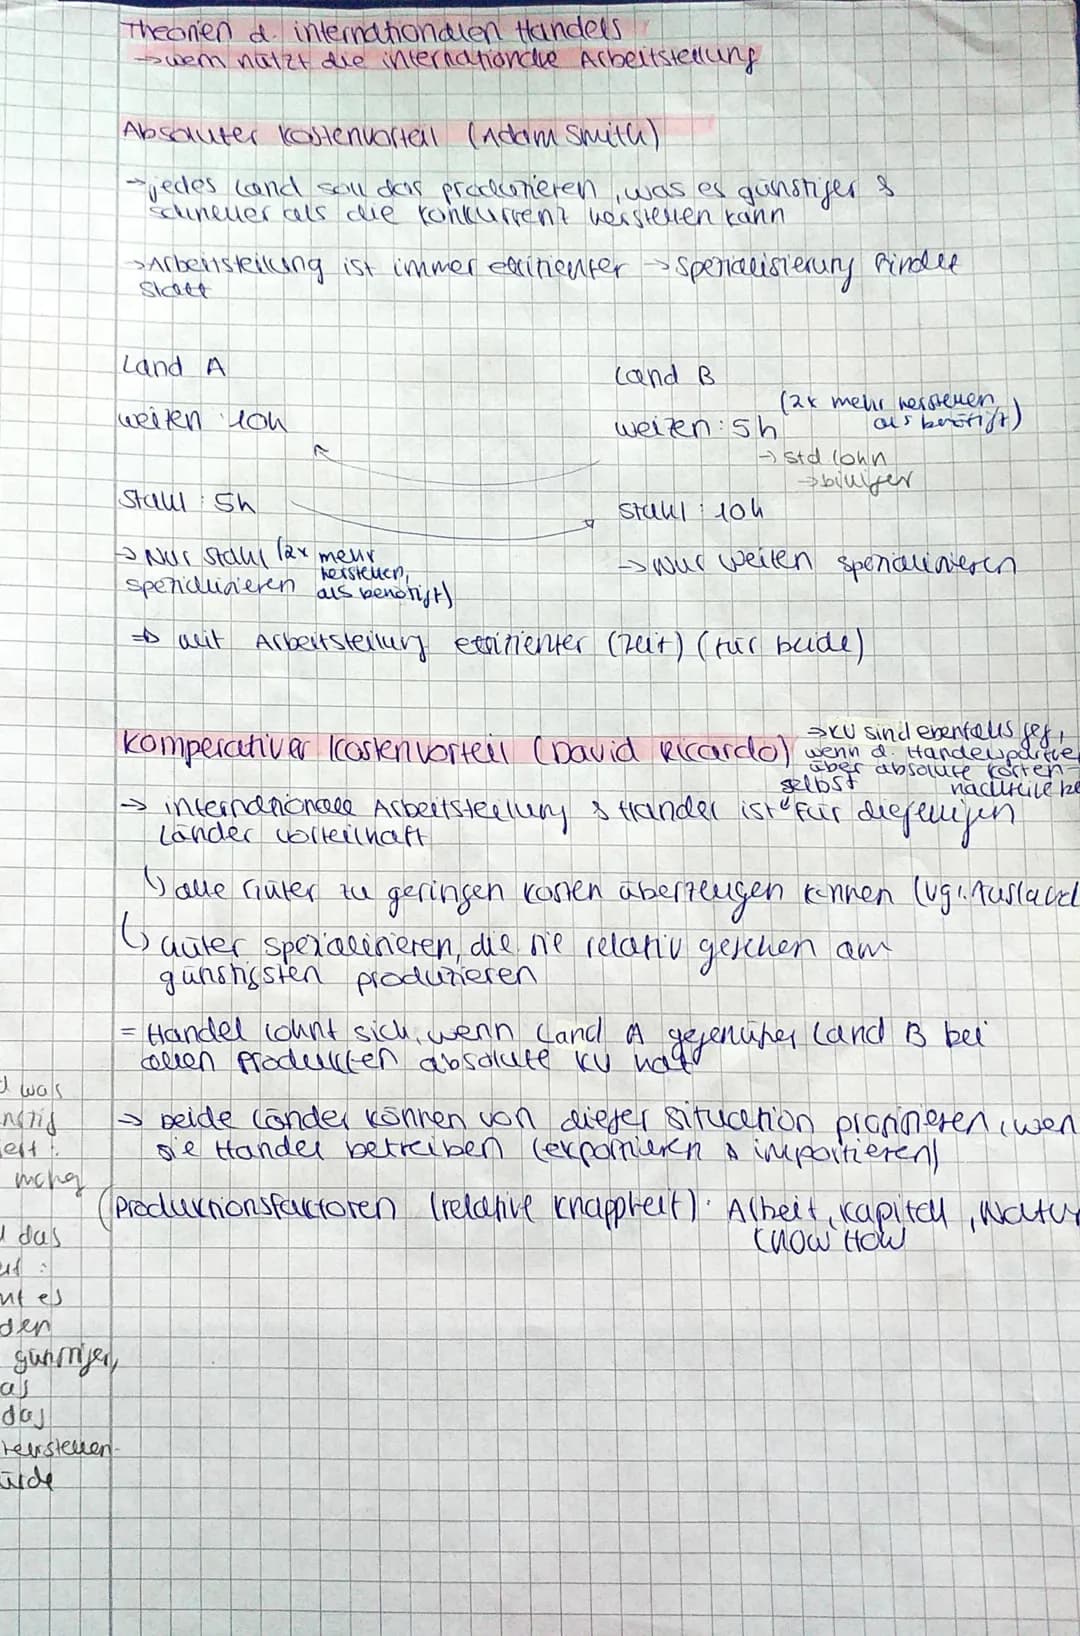 Theorien d. internationalen Handels
→ wem nützt die internationale Arbeitsteilung
Absoluter Kostenvorteil (Adam Smith)
→ jedes Land soll das produzieren, was es günstiger &
schneller als die Konkurrenz herstellen kann
→ Arbeitsteilung ist immer effizienter → Spezialisierung findet
statt
Land A
Land B
weizen : 10h
(2x mehr herstellen,
als benötigt)
weizen : 5h
→ std lohn
→ billiger
Stahl : 5h
Stahl : 10h
→ Nur Stahl (2x mehr
herstellen,
spezialisieren als benötigt)
→ Nur weizen spezialisieren
⇒ mit Arbeitsteilung effizienter (Zeit) (für beide)
→ KV sind ebenfalls geg,
Komperativer Kostenvorteil (David Ricardo) wenn d. Handelspartner
über absolute Kosten-
selbst nachteile
→ internationale Arbeitsteilung & Handel ist für diejenigen
Länder vorteilhaft
↳ alle Güter zu geringen Kosten überzeugen können (vgl. Ausland
↳ Güter spezialisieren, die sie relativ gesehen am
günstigsten produzieren
= Handel lohnt sich, wenn Land A gegenüber Land B bei
allen Produkten absolute KV hat
→ beide Länder können von dieser Situation profitieren, wen
sie Handel betreiben (exportieren & importieren)
(Produktionsfaktoren (relative Knappheit): Arbeit, Kapital, Natur
Know How
was
das
nt es
den
günstiger,
als
das
herstellen
ürde